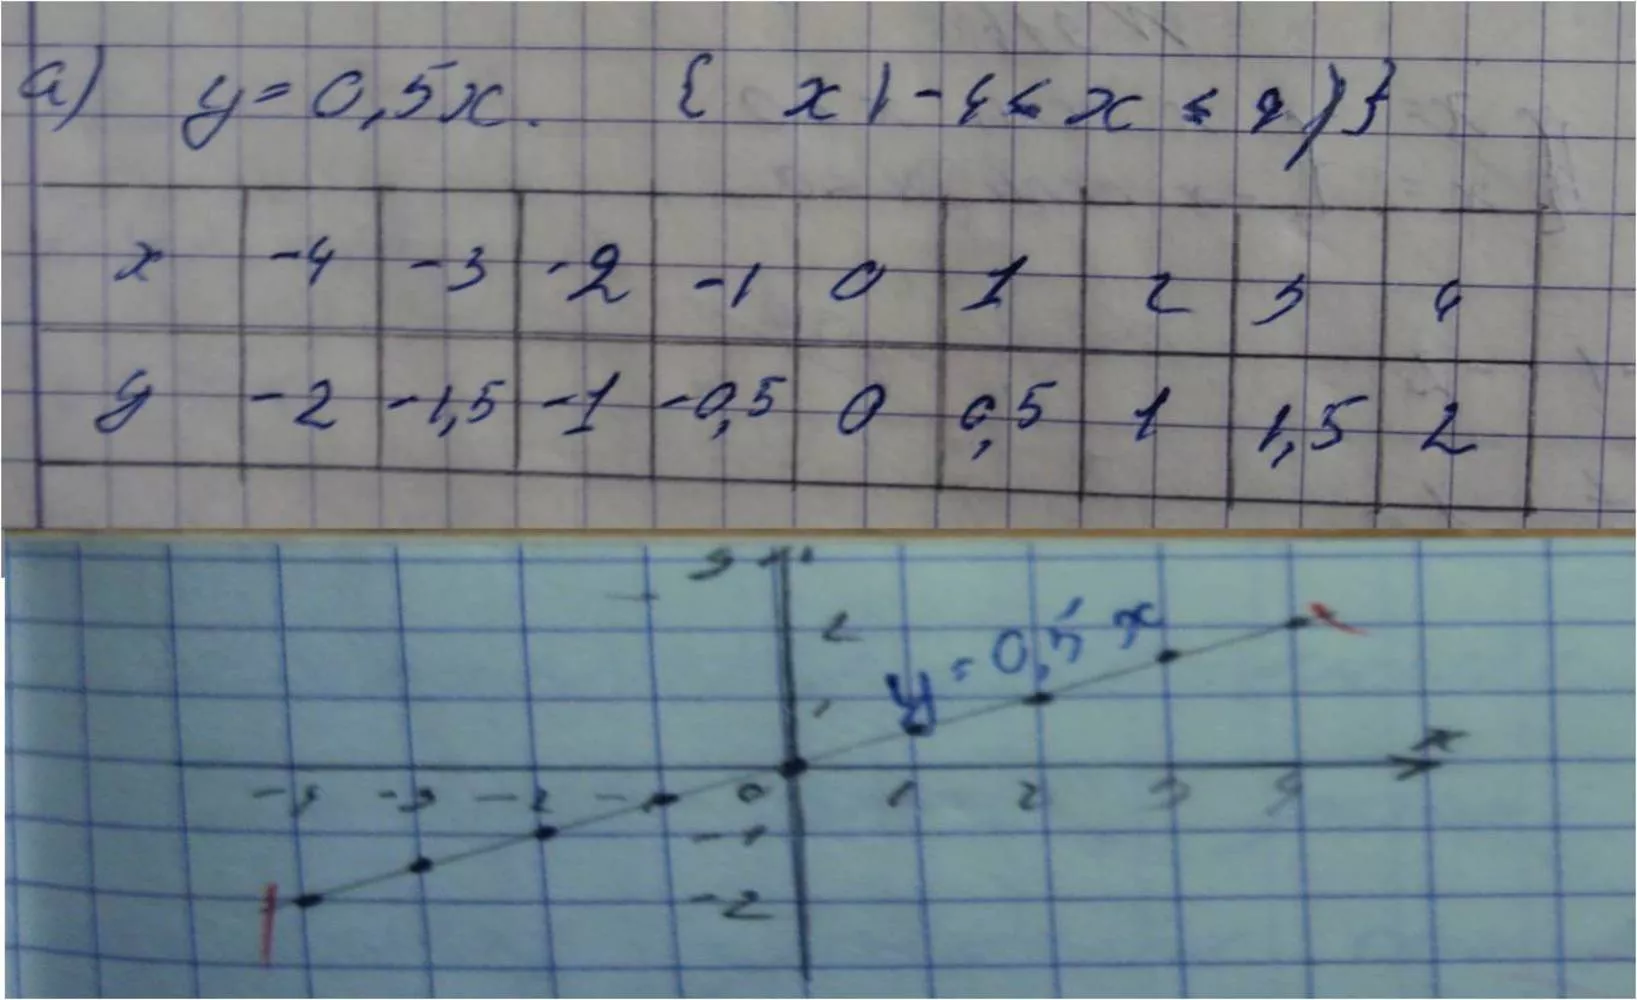 а) y = 0,5x. { x | -4 ≤ x ≤ 4 ) }
x -4 -3 -2 -1 0 1 2 3 4
y -2 -1,5 -1 -0,5 0 0,5 1 1,5 2
y
2
y = 0,5x
1
x
-4 -3 -2 -1 0 1 2 3 4
-1
-2